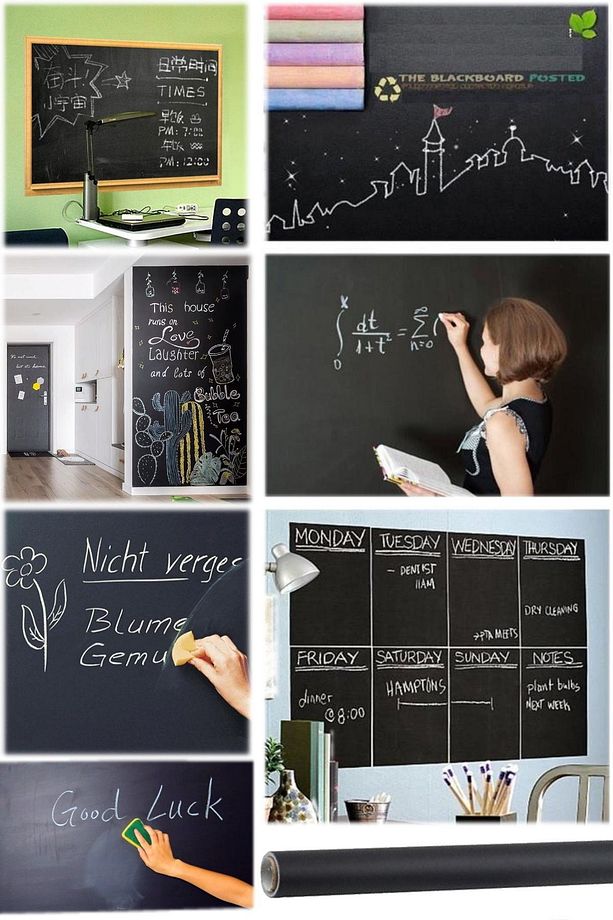 宙斗!
小宇宙
日常时间
TIMES
早饭
PM: 7:00
午饭
PM: 12:00
THE BLACKBOARD POSTED
This house
runs on
Love
Laughter
and lots of
Bubble
Tea
x
∫ dt / 1+t² = ∑ (
0
n=0
∞
Nicht verges
Blume
Gemu
MONDAY
TUESDAY
- DENTIST
11AM
WEDNESDAY
→PTA MEETS
THURSDAY
DRY CLEANING
FRIDAY
dinner
@ 8:00
SATURDAY
HAMPTONS
SUNDAY
NOTES
plant bulbs
NEXT WEEK
Good Luck